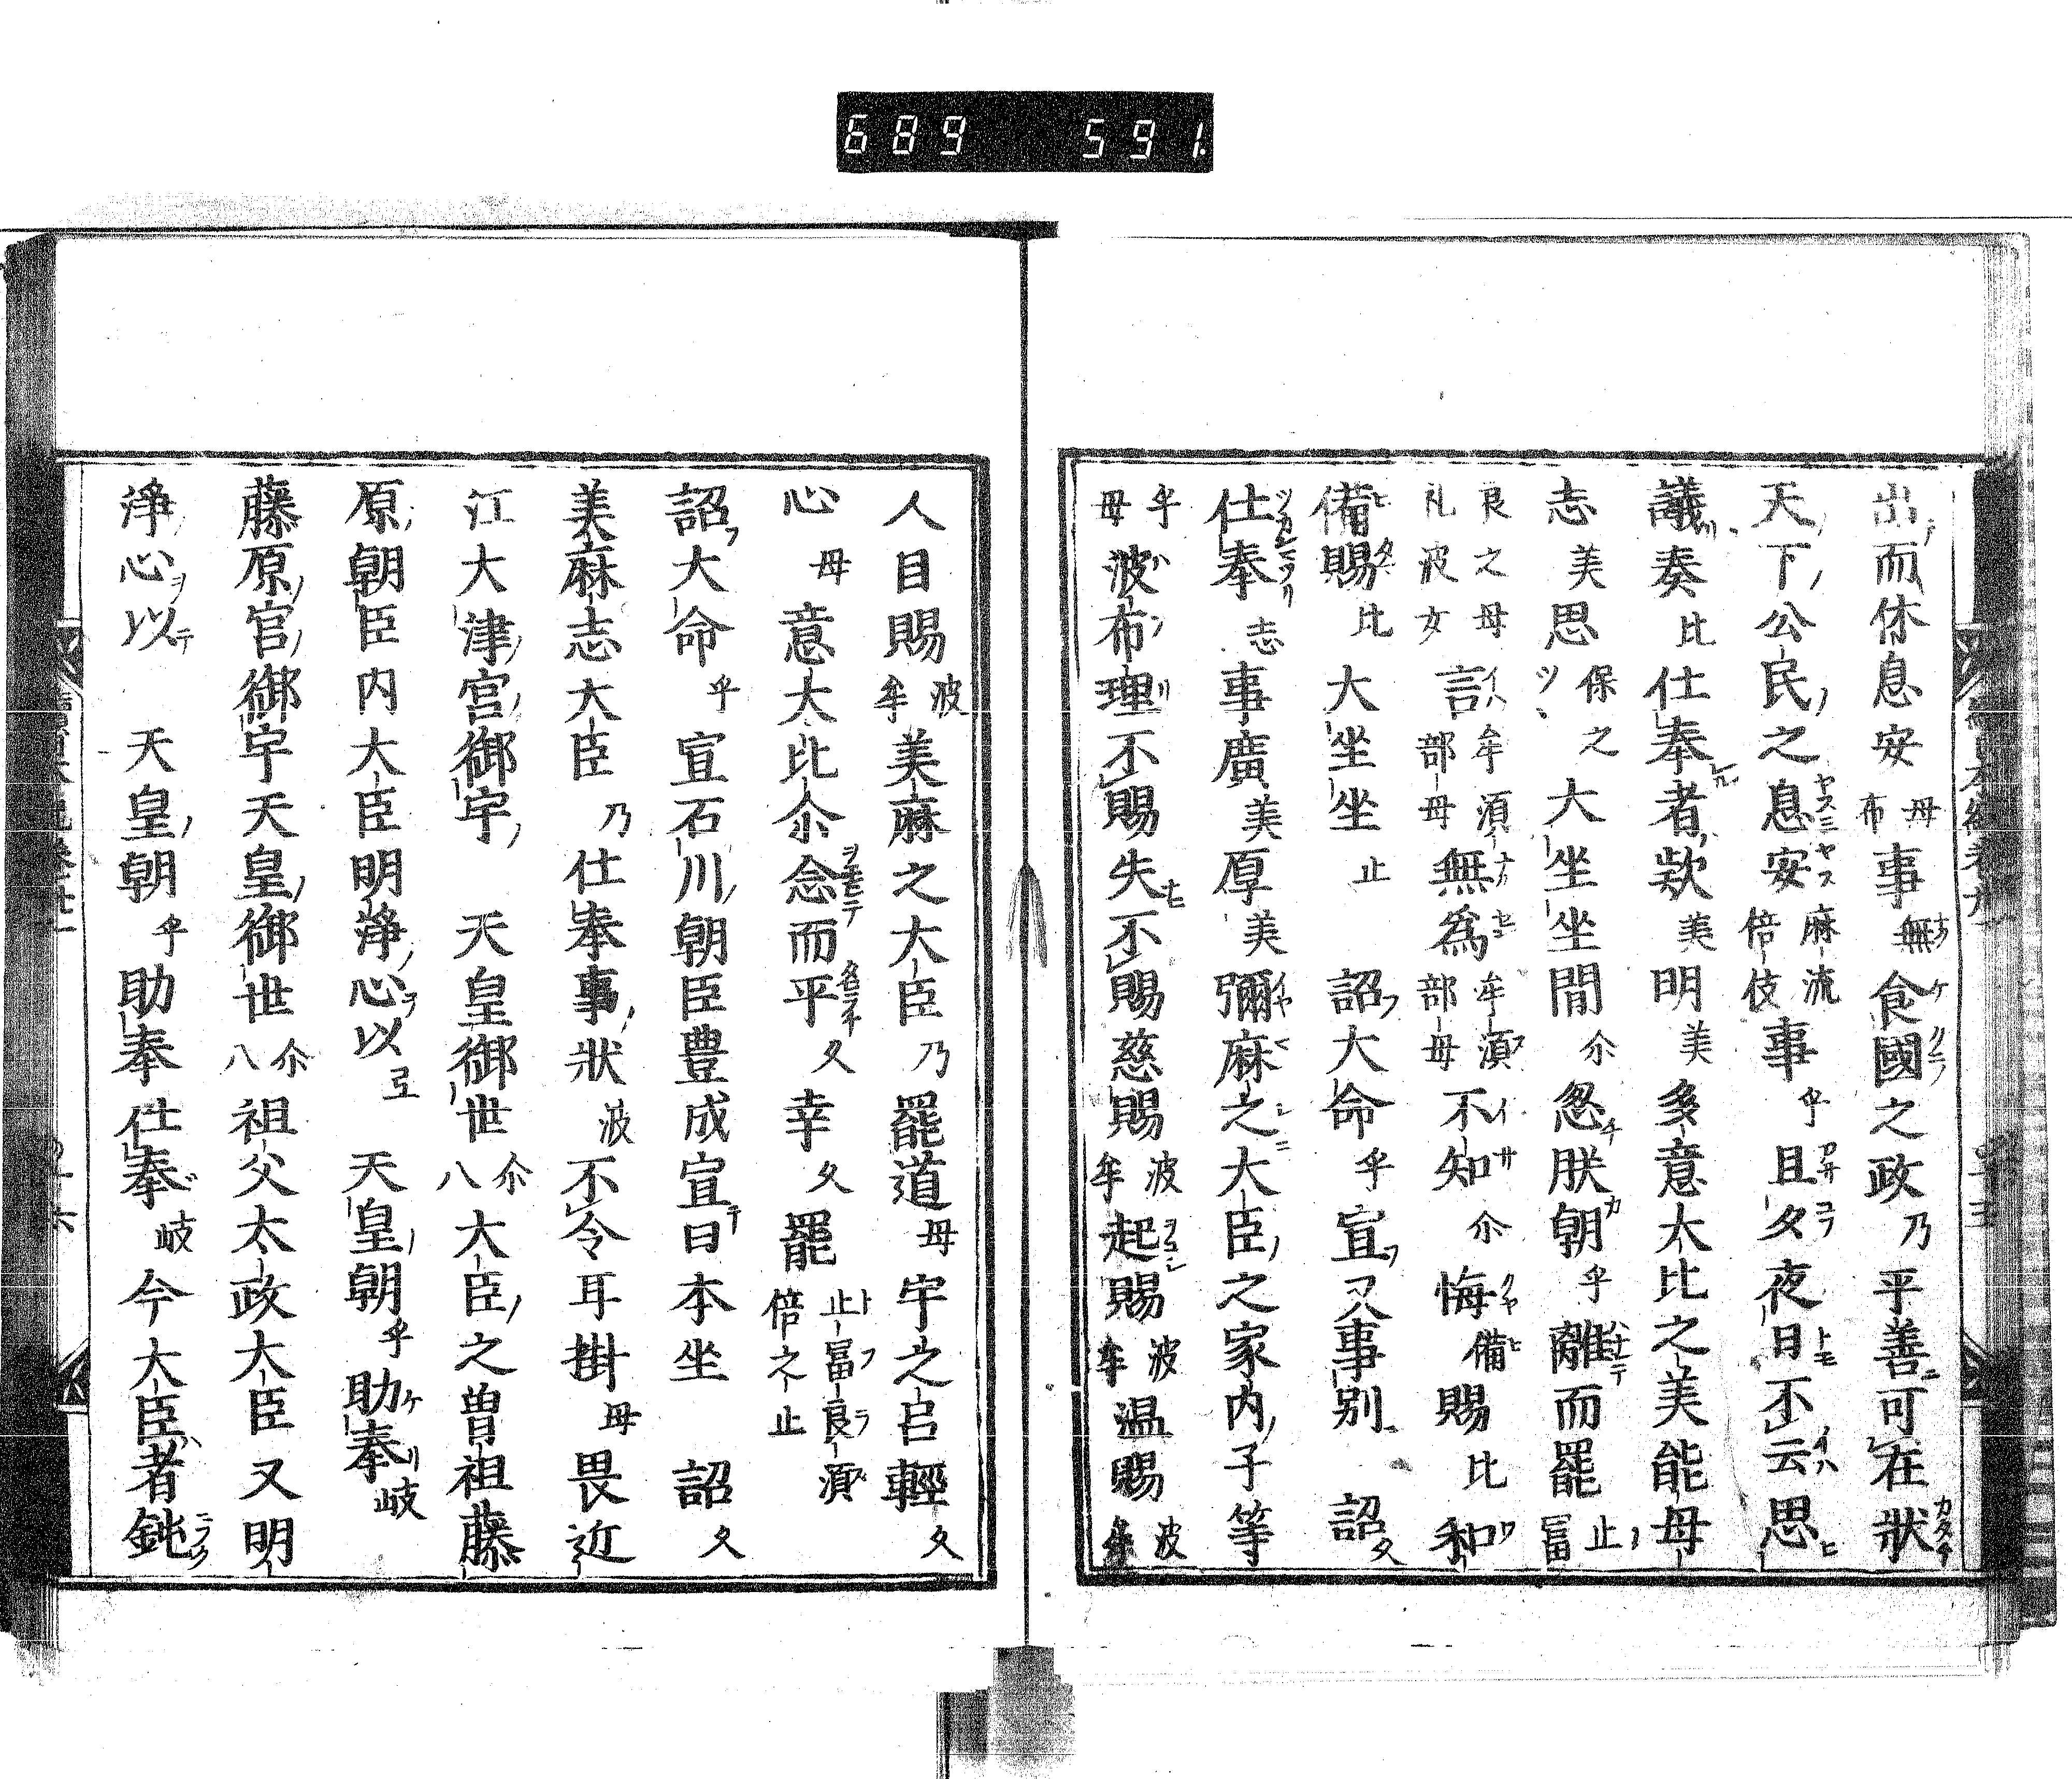 689 591
出而休息安母布事無食國之政乃平善可在狀
天下公民之息安麻流倍伎事乎且夕夜日不云思
議奏比仕奉者欵美明美多意太比之美能母
志美思保之ツヽ大坐坐間尒忽朕朝乎離而罷止富
良之母礼波女言牟部須母無爲牟部須母不知尒悔備賜比和
備賜比大坐坐止 詔大命乎宣又事別 詔久
仕奉志事廣美厚美彌麻之大臣之家内子等
乎母波布理不賜失不賜慈賜波牟起賜波牟温賜波牟
人目賜波牟美麻之大臣乃罷道母宇之呂輕久
心母意太比尒念而平久幸久罷止富良須倍之止
詔大命乎宣石川朝臣豊成宣曰本坐 詔久
美麻志大臣乃仕奉事狀波不令耳掛母畏近
江大津宮御宇 天皇御世尒八大臣之曽祖藤
原朝臣内大臣明浄心以弖 天皇朝乎助奉岐
藤原宮御宇天皇御世尒八祖父太政大臣又明
浄心以 天皇朝乎助奉仕奉岐今大臣者鈍